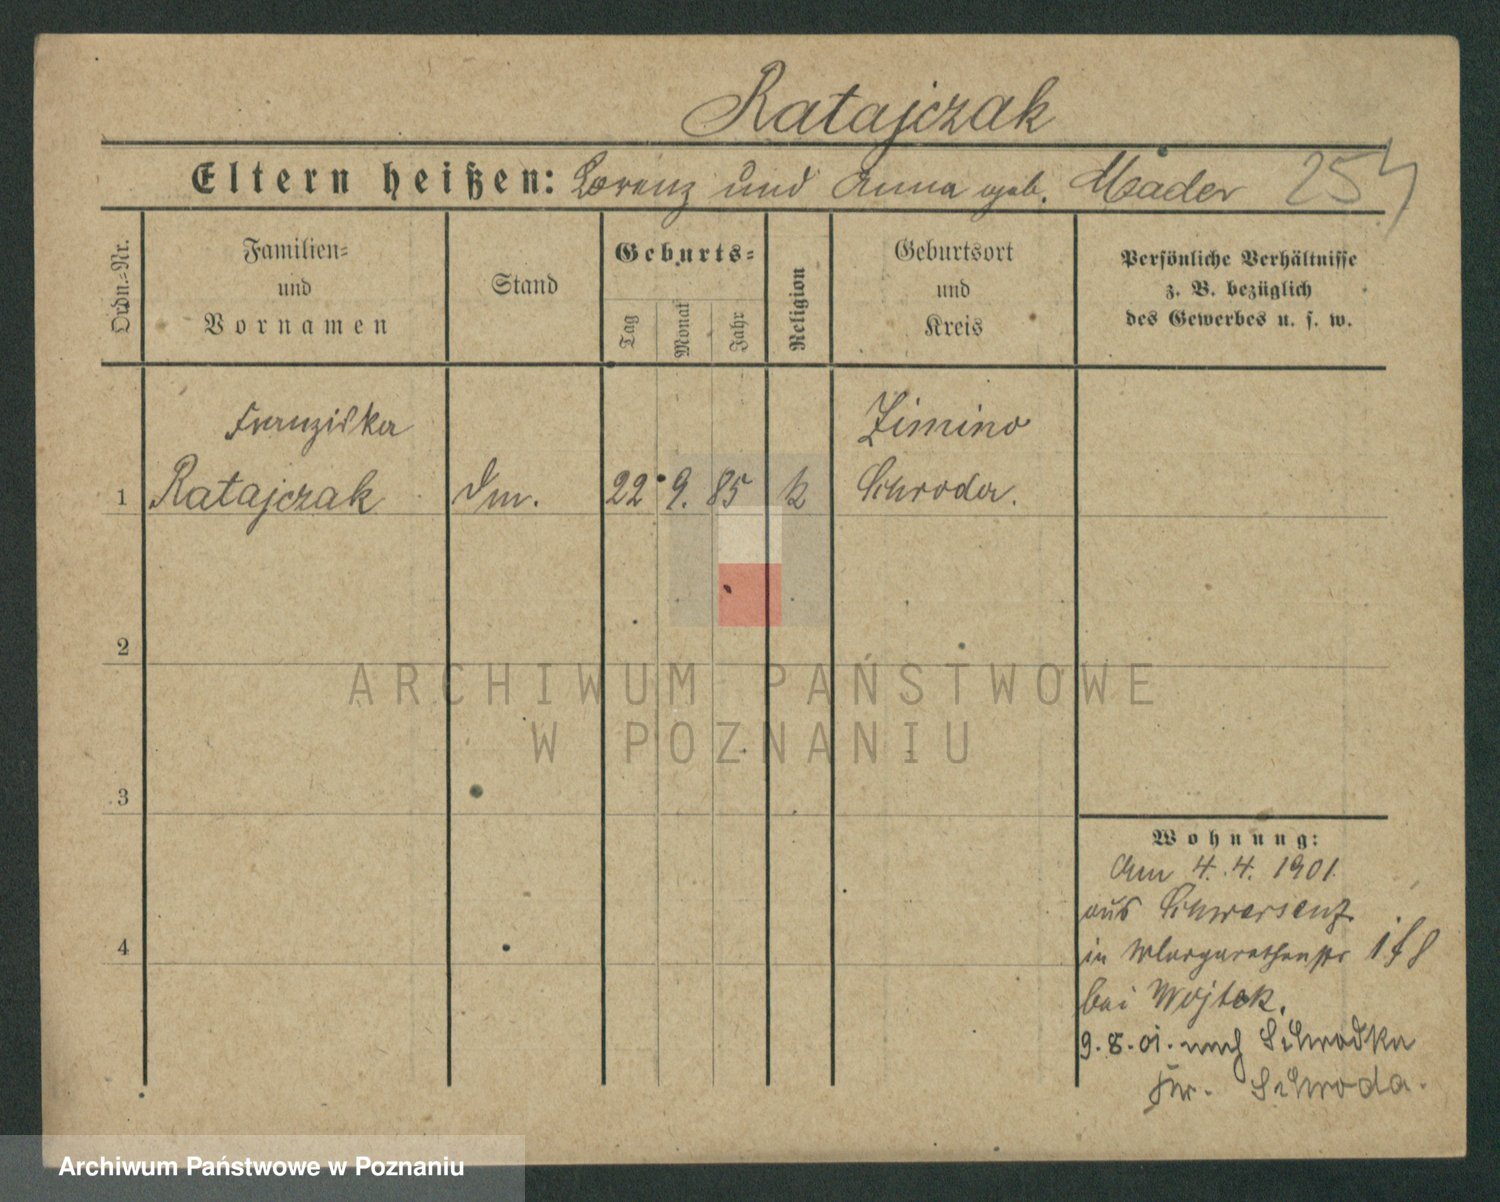 Ratajczak
Eltern heißen: Lorenz und Anna geb. Mader
Ordn.=Nr.
Familien=
und
Vornamen
Stand
Geburts=
Tag
Monat
Jahr
Religion
Geburtsort
und
Kreis
Persönliche Verhältnisse
z. B. bezüglich
des Gewerbes u. s. w.
Franziska Zimino
1 Ratajczak Dm. 22. 9. 85 k Schroda.
2
ARCHIWUM PAŃSTWOWE
W POZNANIU
3
Wohnung:
Am 4. 4. 1901
aus Schwersenz
4
in Margarethenstr
bei Wojtek.
9. 8. 01. nach Schrodka
Kr. Schroda.
Archiwum Państwowe w Poznaniu